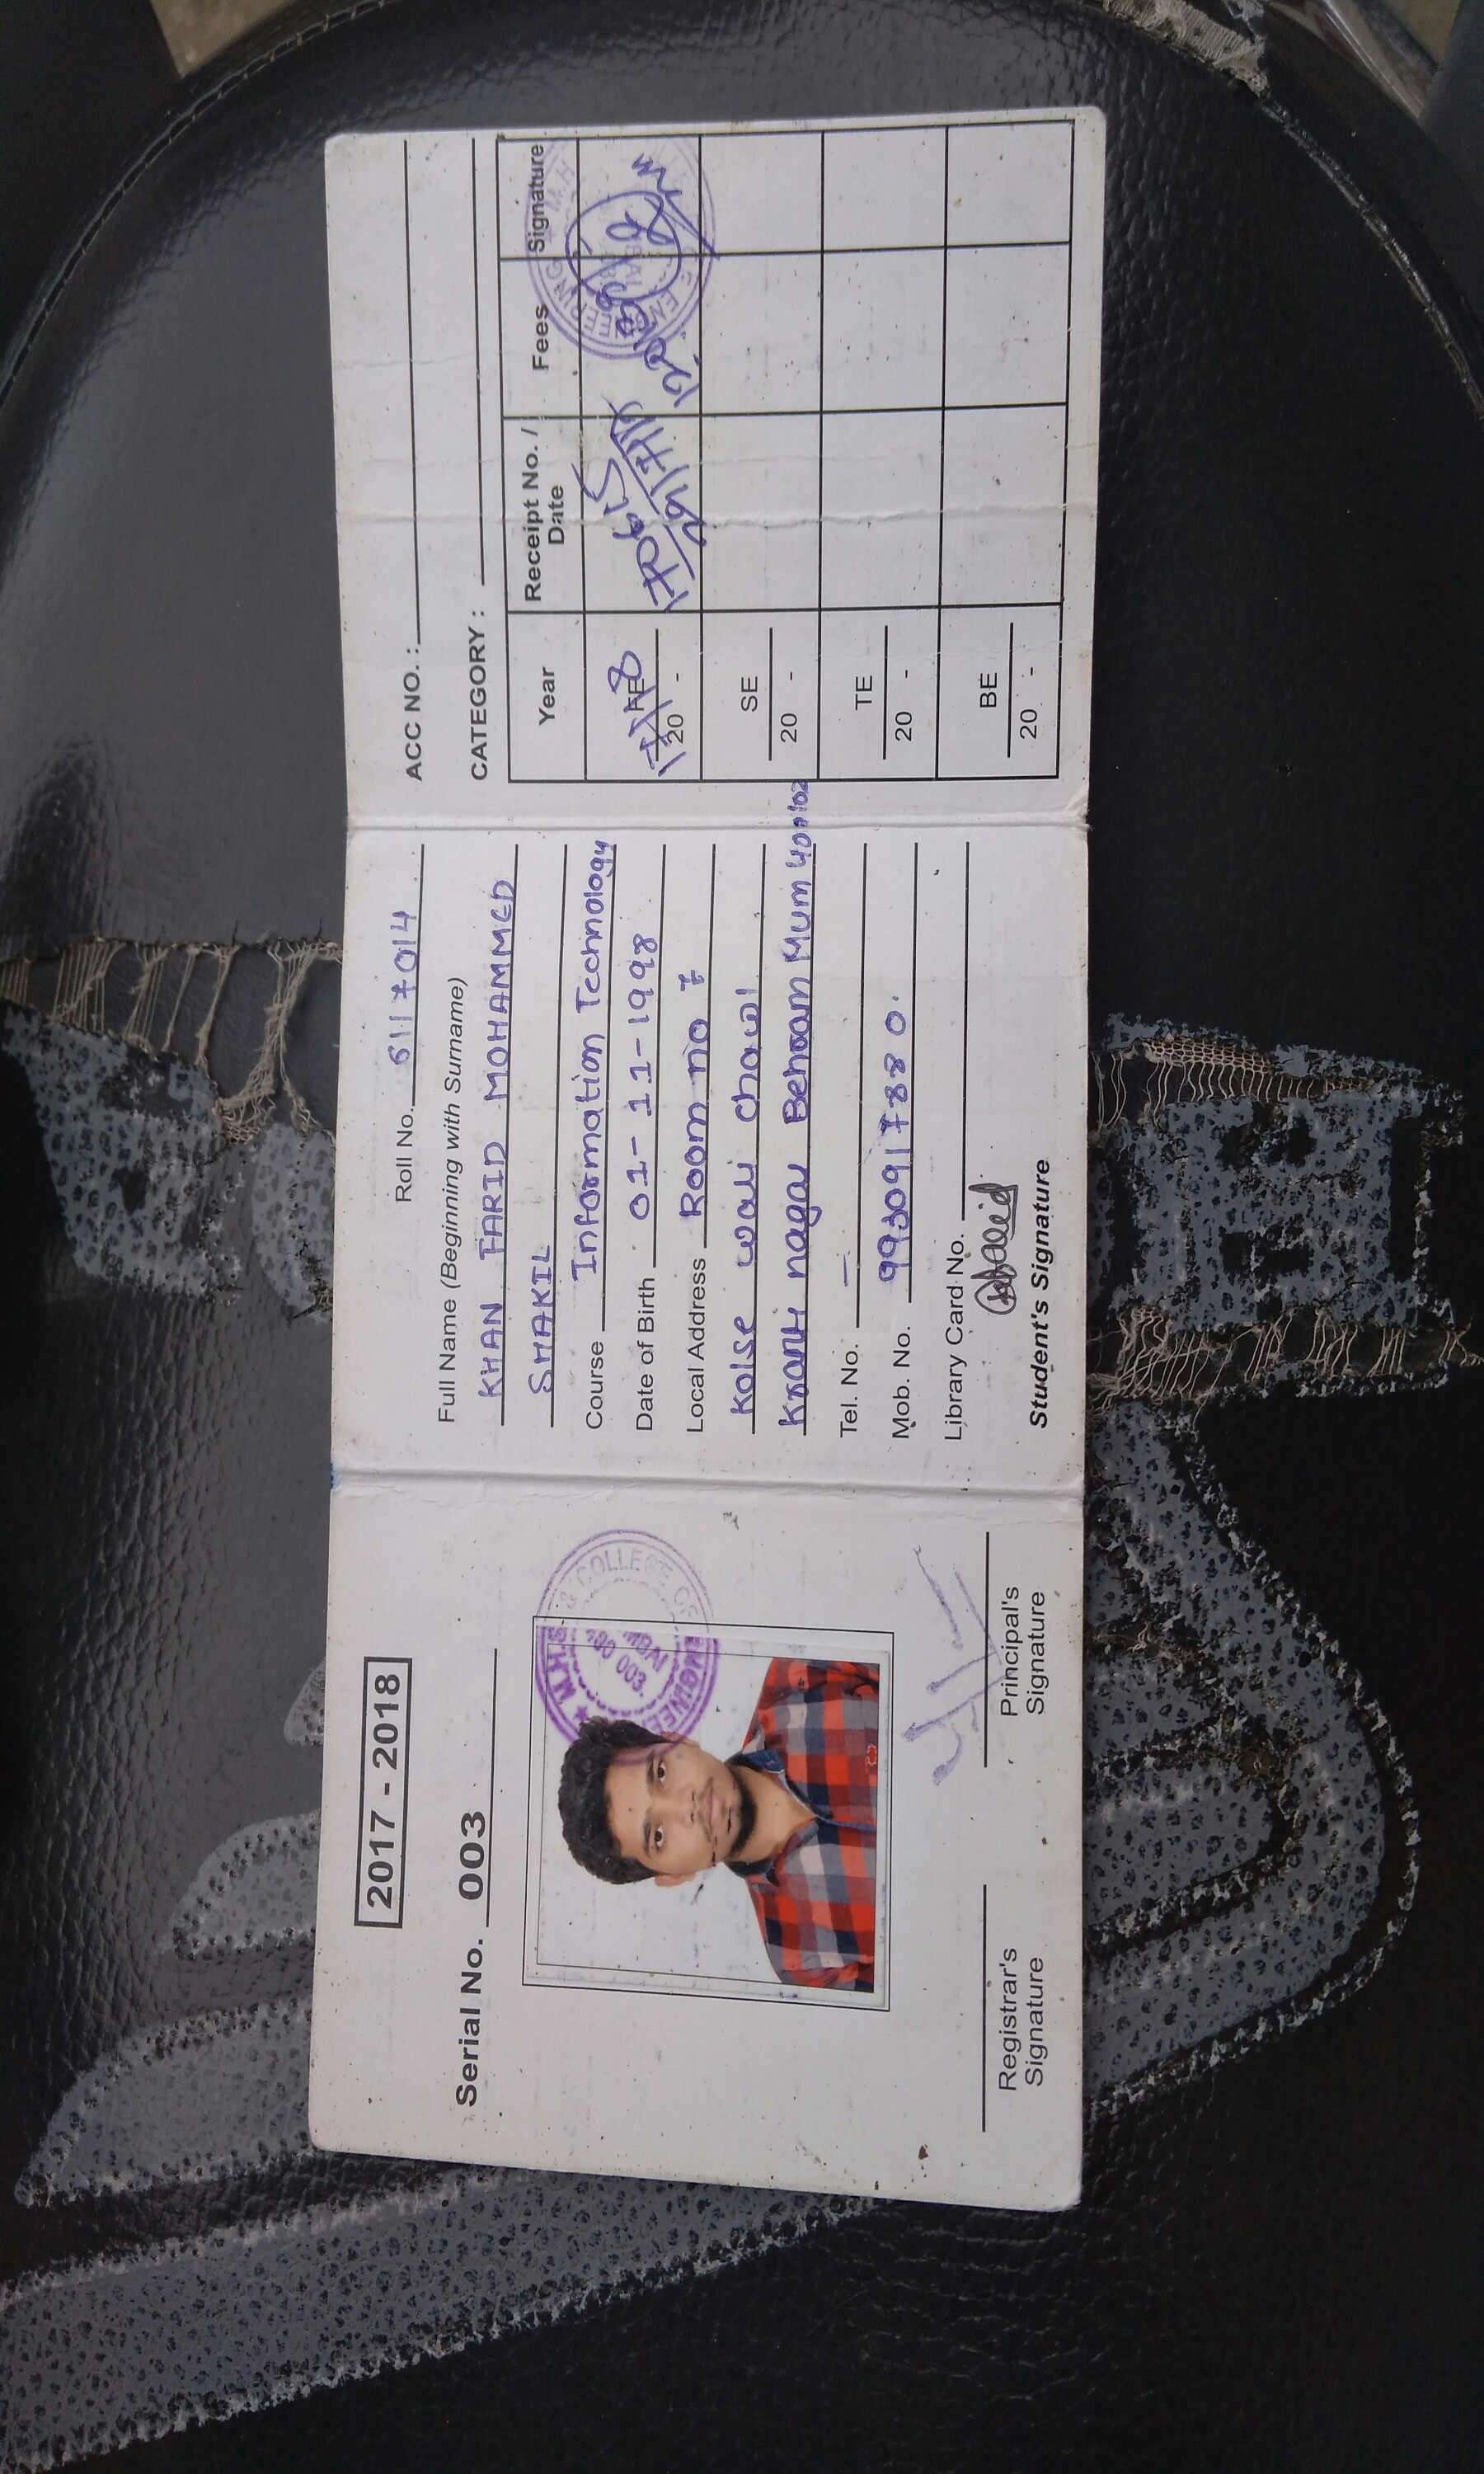 2017 - 2018
Serial No. 003
★ M.H.S
& COLLEGE OF
ENGINEE
MBAI
00 003.
Registrar's
Signature
Principal's
Signature
Roll No. 6117014
Full Name (Beginning with Surname)
KHAN FARID MOHAMMED
SHAKIL
Course Information Technology
Date of Birth 01-11-1998
Local Address Room no 7
Kolse wali chawl
nagar Mum
Tel. No. –
Mob. No.
Library Card No.
Student's Signature
ACC NO. :
CATEGORY :
Year Receipt No. / Date Fees Signature
FE
20 -
17/18
170615
SE
20 -
TE
20 -
BE
20 -